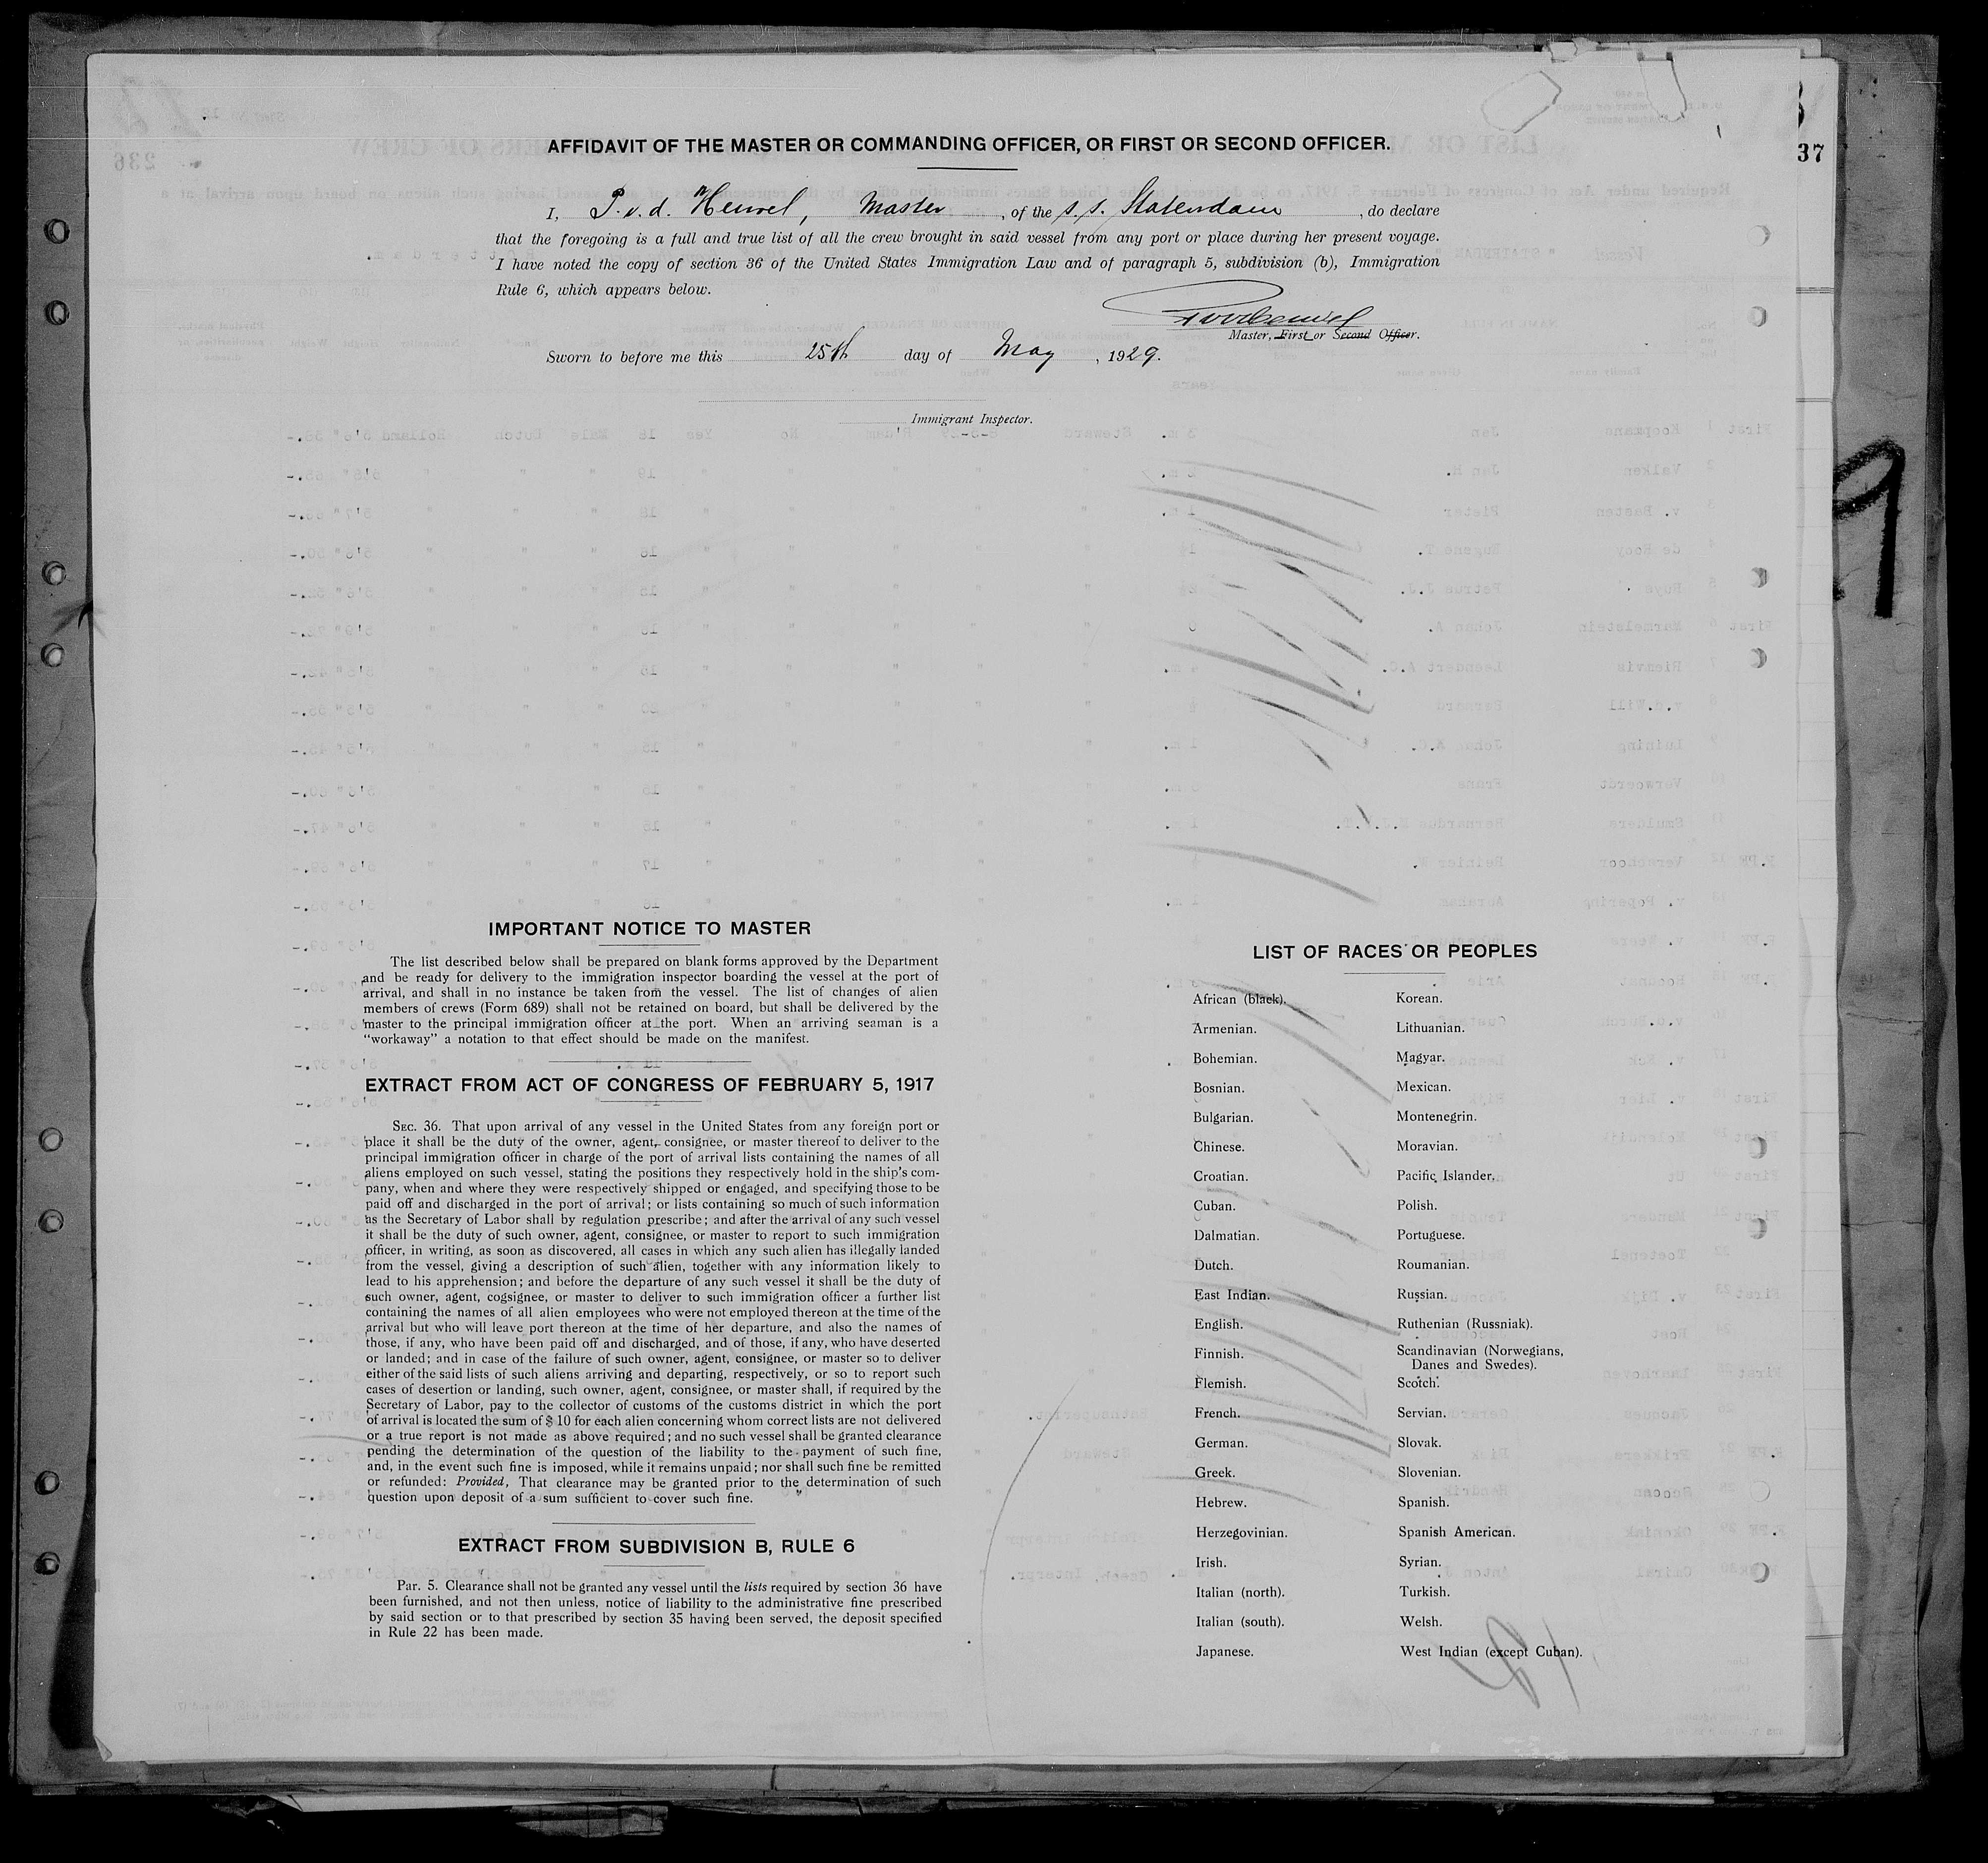 AFFIDAVIT OF THE MASTER OR COMMANDING OFFICER, OR FIRST OR SECOND OFFICER.
37
I, P. v. d. Heuvel, Master, of the s.s. Statendam, do declare
that the foregoing is a full and true list of all the crew brought in said vessel from any port or place during her present voyage.
I have noted the copy of section 36 of the United States Immigration Law and of paragraph 5, subdivision (b), Immigration
Rule 6, which appears below.
Master, First or Second Officer.
Sworn to before me this 25th day of May, 1929.
Immigrant Inspector.
IMPORTANT NOTICE TO MASTER
The list described below shall be prepared on blank forms approved by the Department
and be ready for delivery to the immigration inspector boarding the vessel at the port of
arrival, and shall in no instance be taken from the vessel. The list of changes of alien
members of crews (Form 689) shall not be retained on board, but shall be delivered by the
master to the principal immigration officer at the port. When an arriving seaman is a
“workaway” a notation to that effect should be made on the manifest.
EXTRACT FROM ACT OF CONGRESS OF FEBRUARY 5, 1917
SEC. 36. That upon arrival of any vessel in the United States from any foreign port or
place it shall be the duty of the owner, agent, consignee, or master thereof to deliver to the
principal immigration officer in charge of the port of arrival lists containing the names of all
aliens employed on such vessel, stating the positions they respectively hold in the ship's com-
pany, when and where they were respectively shipped or engaged, and specifying those to be
paid off and discharged in the port of arrival; or lists containing so much of such information
as the Secretary of Labor shall by regulation prescribe; and after the arrival of any such vessel
it shall be the duty of such owner, agent, consignee, or master to report to such immigration
officer, in writing, as soon as discovered, all cases in which any such alien has illegally landed
from the vessel, giving a description of such alien, together with any information likely to
lead to his apprehension; and before the departure of any such vessel it shall be the duty of
such owner, agent, cogsignee, or master to deliver to such immigration officer a further list
containing the names of all alien employees who were not employed thereon at the time of the
arrival but who will leave port thereon at the time of her departure, and also the names of
those, if any, who have been paid off and discharged, and of those, if any, who have deserted
or landed; and in case of the failure of such owner, agent, consignee, or master so to deliver
either of the said lists of such aliens arriving and departing, respectively, or so to report such
cases of desertion or landing, such owner, agent, consignee, or master shall, if required by the
Secretary of Labor, pay to the collector of customs of the customs district in which the port
of arrival is located the sum of $ 10 for each alien concerning whom correct lists are not delivered
or a true report is not made as above required; and no such vessel shall be granted clearance
pending the determination of the question of the liability to the payment of such fine,
and, in the event such fine is imposed, while it remains unpaid; nor shall such fine be remitted
or refunded: Provided, That clearance may be granted prior to the determination of such
question upon deposit of a sum sufficient to cover such fine.
EXTRACT FROM SUBDIVISION B, RULE 6
Par. 5. Clearance shall not be granted any vessel until the lists required by section 36 have
been furnished, and not then unless, notice of liability to the administrative fine prescribed
by said section or to that prescribed by section 35 having been served, the deposit specified
in Rule 22 has been made.
LIST OF RACES OR PEOPLES
African (black).
Armenian.
Bohemian.
Bosnian.
Bulgarian.
Chinese.
Croatian.
Cuban.
Dalmatian.
Dutch.
East Indian.
English.
Finnish.
Flemish.
French.
German.
Greek.
Hebrew.
Herzegovinian.
Irish.
Italian (north).
Italian (south).
Japanese.
Korean.
Lithuanian.
Magyar.
Mexican.
Montenegrin.
Moravian.
Pacific Islander.
Polish.
Portuguese.
Roumanian.
Russian.
Ruthenian (Russniak).
Scandinavian (Norwegians,
Danes and Swedes).
Scotch.
Servian.
Slovak.
Slovenian.
Spanish.
Spanish American.
Syrian.
Turkish.
Welsh.
West Indian (except Cuban).